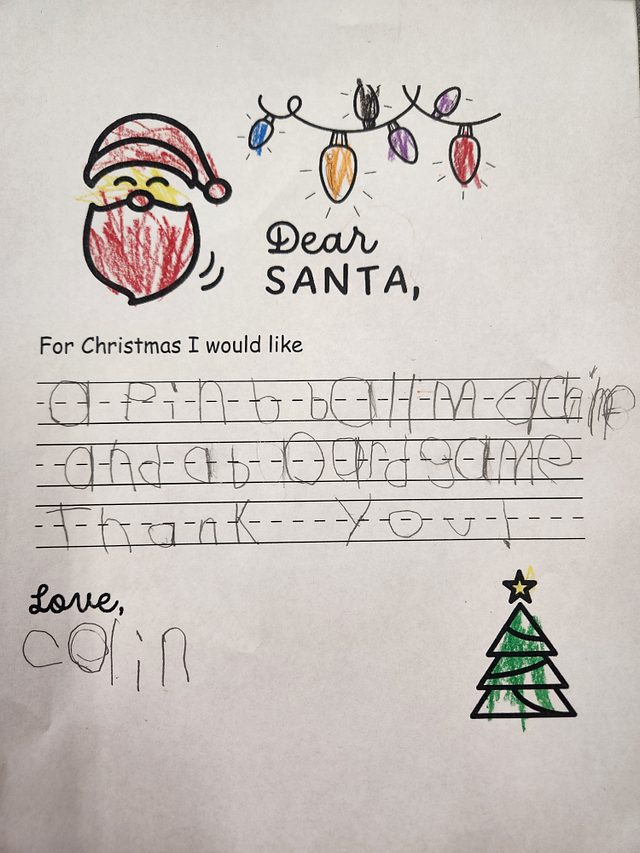 Dear
SANTA,
For Christmas I would like
a Pinball machine
and a board game
Thank You!
Love,
colin